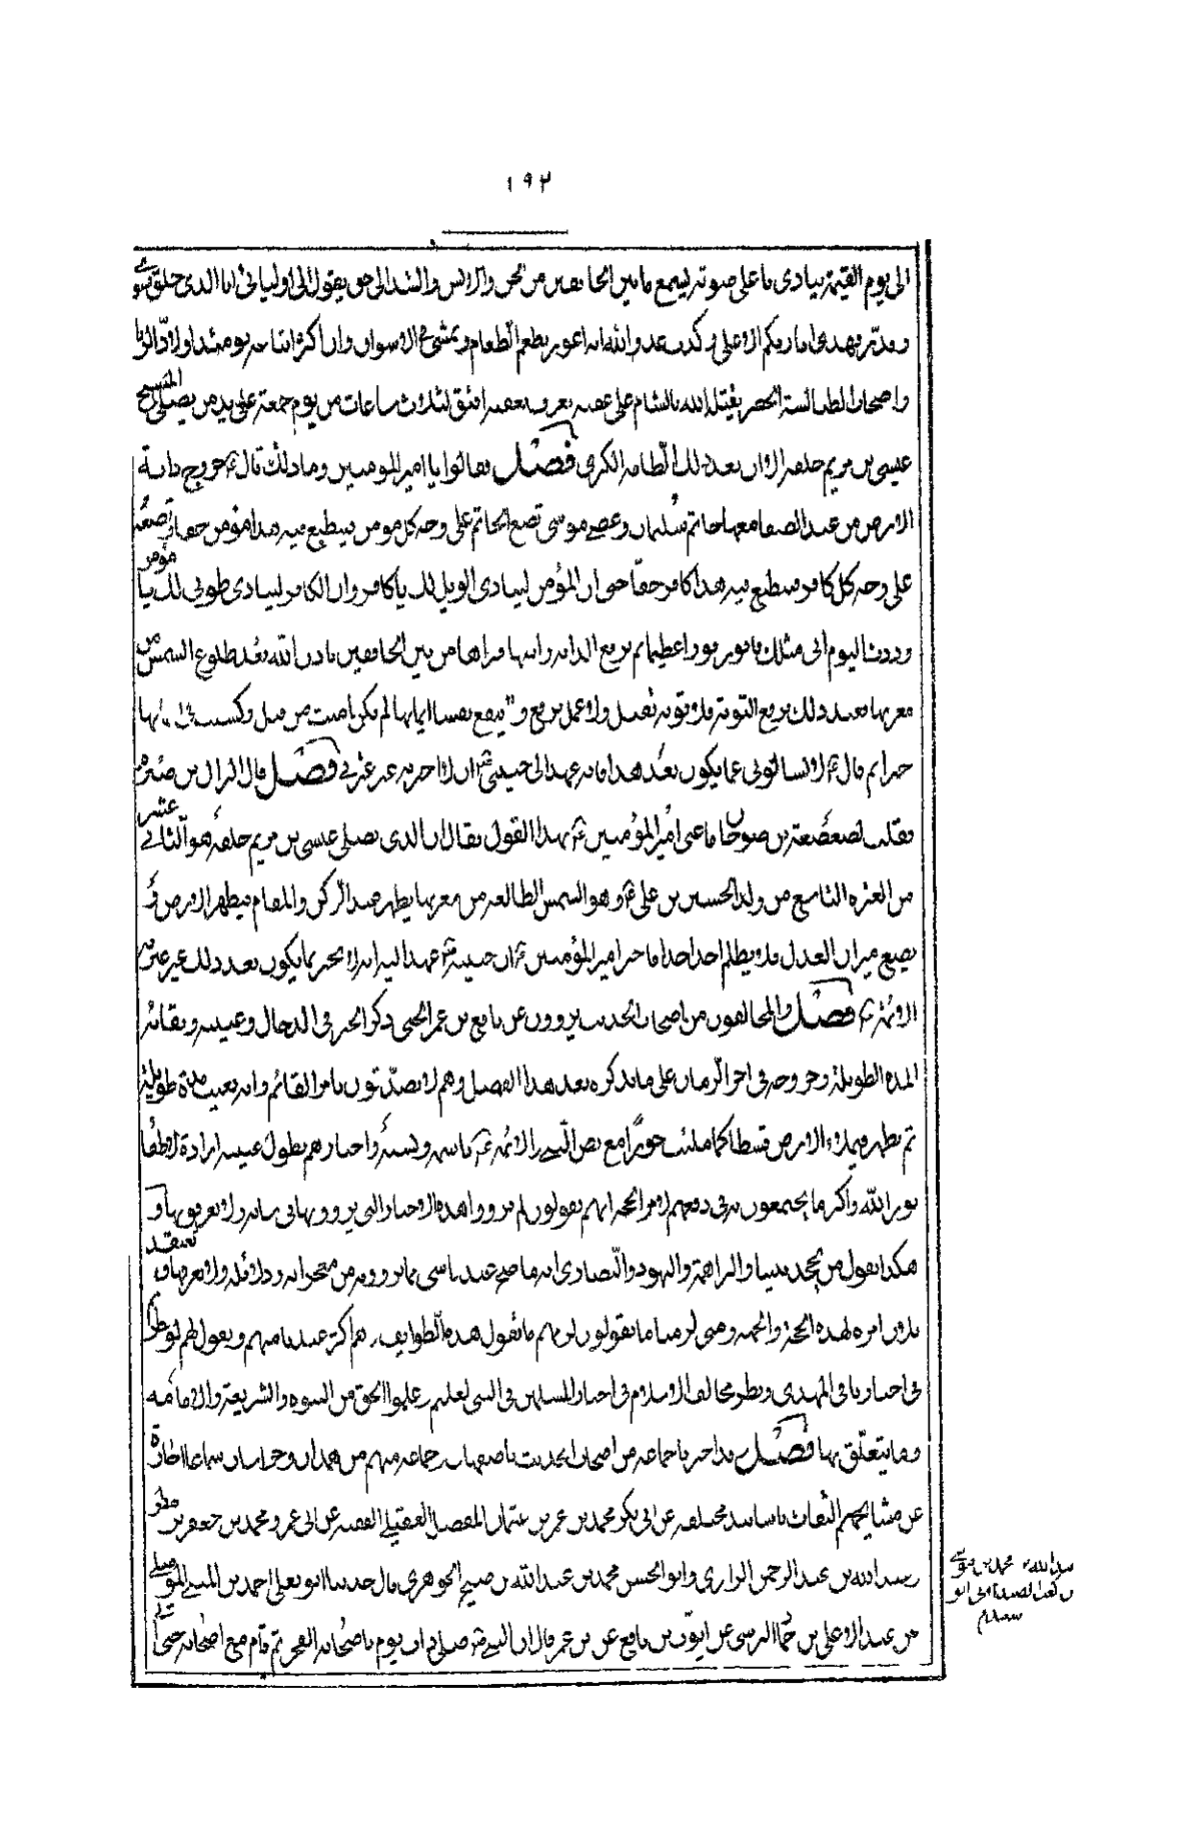 ١٩٢
الى يوم القيمة ينادى باعلى صوته يسمع ما بين الخافقين من الجن والانس والشياطين يقول الى اوليائى انا الذى خلق فسوى
وقدر فهدى انا ربكم الاعلى وكذب عدو الله انه اعور يطعم الطعام ويمشى فى الاسواق وان اكثر اتباعه يومئذ اولاد الزنا
واصحاب الطيالسة الخضر يقتله الله بالشام على عقبة تعرف بعقبة افيق لثلاث ساعات من يوم جمعة على يد من يصلى المسيح
عيسى بن مريم خلفه الا ان بعد ذلك الطامة الكبرى فصل فقالوا يا امير المومنين وما ذلك قال ع خروج دابة
الارض من عند الصفا معها خاتم سليمان وعصى موسى تضع الخاتم على وجه كل مومن فينطبع فيه هذا مؤمن حقا وتضعه
على وجه كل كافر فينطبع فيه هذا كافر حقا حتى ان المؤمن لينادى الويل لك يا كافر وان الكافر لينادى طوبى لك يا مؤمن
وددت اليوم انى مثلك فافوز فوزا عظيما ثم ترفع الدابة راسها فيراها من بين الخافقين باذن الله بعد طلوع الشمس من
مغربها فعند ذلك ترفع التوبة فلا توبة تقبل ولا عمل يرفع و لا ينفع نفسا ايمانها لم تكن امنت من قبل او كسبت فى ايمانها
خيرا ثم قال ع لا تسالونى عما يكون بعد هذا فانه عهد الى حبيبى ان لا اخبر به غير عترتى فصل قال النزال بن سبرة
فقلت لصعصعة بن صوحان ما عنى امير المؤمنين ع بهذا القول فقال ان الذى يصلى عيسى بن مريم خلفه هو الثانى عشر
من العترة التاسع من ولد الحسين بن على ع وهو الشمس الطالعة من مغربها يظهر عند الركن والمقام فيطهر الارض و
يضع ميزان العدل فلا يظلم احد احدا فاخبر امير المؤمنين ع ان حبيبه عهد اليه ان لا يخبر بما يكون بعد ذلك غير عترته
الائمة ع فصل والمخالفون من اصحاب الحديث يروون عن نافع بن عمر الجمحى ذكر الخبر فى الدجال وغيبته وبقائه
المدة الطويلة وخروجه فى اخر الزمان على ما نذكره بعد هذا الفصل وهم لا يصدقون بامر القائم وانه يغيب مدة طويلة
ثم يظهر فيملاء الارض قسطا كما ملئت جورا مع نص النبى والائمة ع باسمه ونسبه واخبارهم بطول غيبته ارادة لاطفاء
نور الله واكثر ما يحتجون به فى دفعهم لامر الحجة انهم يقولون لم نرو هذه الاخبار التى يروونها فى شانه ولا نعرفها و
هكذا يقول من يجحد نبينا والبراهمة واليهود والنصارى انه ما صح عندنا شى مما تروونه من معجزاته ودلائله ولا نعرفها ونعتقد
بطلان امره لهذه الجهة ومتى لزمنا ما يقولون لزمهم ما تقول هذه الطوايف وهم اكثر عددا منهم ويقول لهم لو نظروا
فى اخبارنا فى المهدى ونظر مخالف الاسلام فى اخبار المسلمين فى النبى لعلهم علموا الحق من النبوة والشريعة والامامة
وما يتعلق بها فصل وقد اخبرنا جماعة من اصحاب الحديث باصفهان جماعة منهم من همدان وخراسان سماعا واجازة
عن مشايخهم الثقات باسانيد مختلفة عن ابى بكر محمد بن عمر بن عثمان المفضل العقيلى الفقيه عن ابى عمرو محمد بن جعفر بن مظفر
وعبد الله بن عبد الرحمن الرازى وابو الحسن محمد بن عبد الله بن صبيح الجوهرى قال حدثنا ابو يعلى احمد بن المثنى الموصلى
عن عبد الاعلى بن حماد النرسى عن ايوب عن نافع عن بن عمر قال ان النبى ص صلى ذات يوم باصحابه الفجر ثم قام مع اصحابه حتى اتى
عبد الله محمد بن موسى